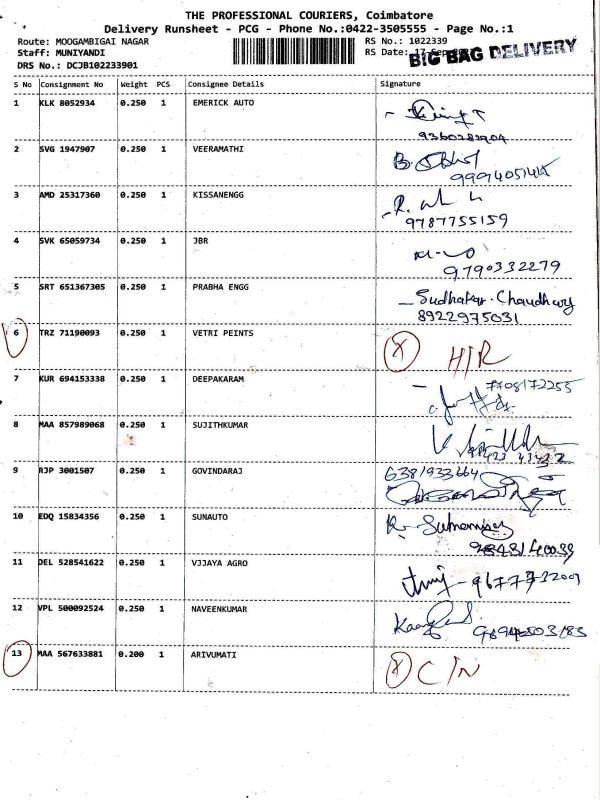 THE PROFESSIONAL COURIERS, Coimbatore
Delivery Runsheet - PCG - Phone No.:0422-3505555 - Page No.:1
Route: MOOGAMBIGAI NAGAR RS No.: 1022339
Staff: MUNIYANDI RS Date: 17-Sep BIG BAG DELIVERY
DRS No.: DCJB102233901
S No Consignment No Weight PCS Consignee Details Signature
1 KLK 8052934 0.250 1 EMERICK AUTO
9360282904
2 SVG 1947907 0.250 1 VEERAMATHI
3 AMD 25317360 0.250 1 KISSANENGG
9787755159
4 SVK 65059734 0.250 1 JBR
9790332279
5 SRT 651367305 0.250 1 PRABHA ENGG Sudhakar. Chaudhary
8922975031
6 TRZ 71190093 0.250 1 VETRI PEINTS X H/R
7 KUR 694153338 0.250 1 DEEPAKARAM 7708172255
8 MAA 857989068 0.250 1 SUJITHKUMAR
9 RJP 3001507 0.250 1 GOVINDARAJ 6381933664
10 EDQ 15834356 0.250 1 SUNAUTO
11 DEL 528541622 0.250 1 VJJAYA AGRO
12 VPL 500092524 0.250 1 NAVEENKUMAR
13 MAA 567633881 0.200 1 ARIVUMATI X C/N